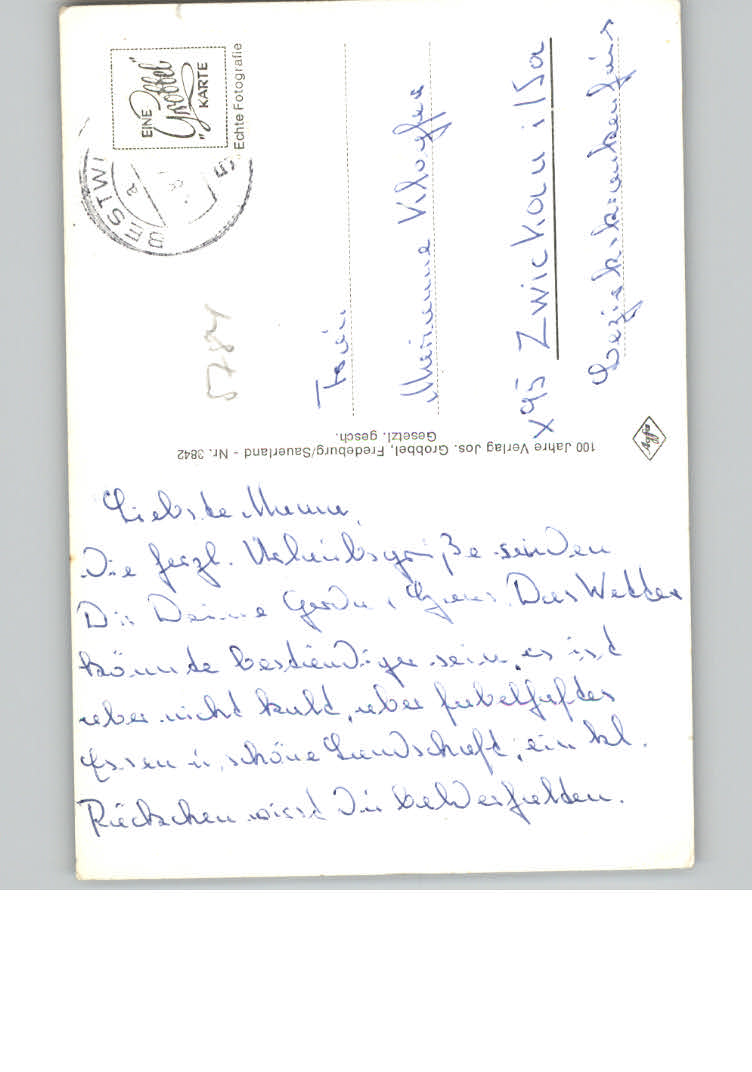 Liebste Munne,
Die herzl. Urlaubsgrüße senden
Dir Deine Gerda u. Das Wetter
könnte beständiger sein, es ist
aber nicht kalt, aber fabelhaftes
Essen u. schöne Landschaft; ein kl.
Päckchen wirst Du bald erhalten.
100 Jahre Verlag Jos. Grobbel, Fredeburg/Sauerland - Nr. 3842
Gesetzl. gesch.
Agfa
EINE
"Grobbel"
KARTE
Echte Fotografie
BESTWI
a
5784
Frau
Marianne
X95 Zwickau i/Sa
Bezirkskrankenhaus